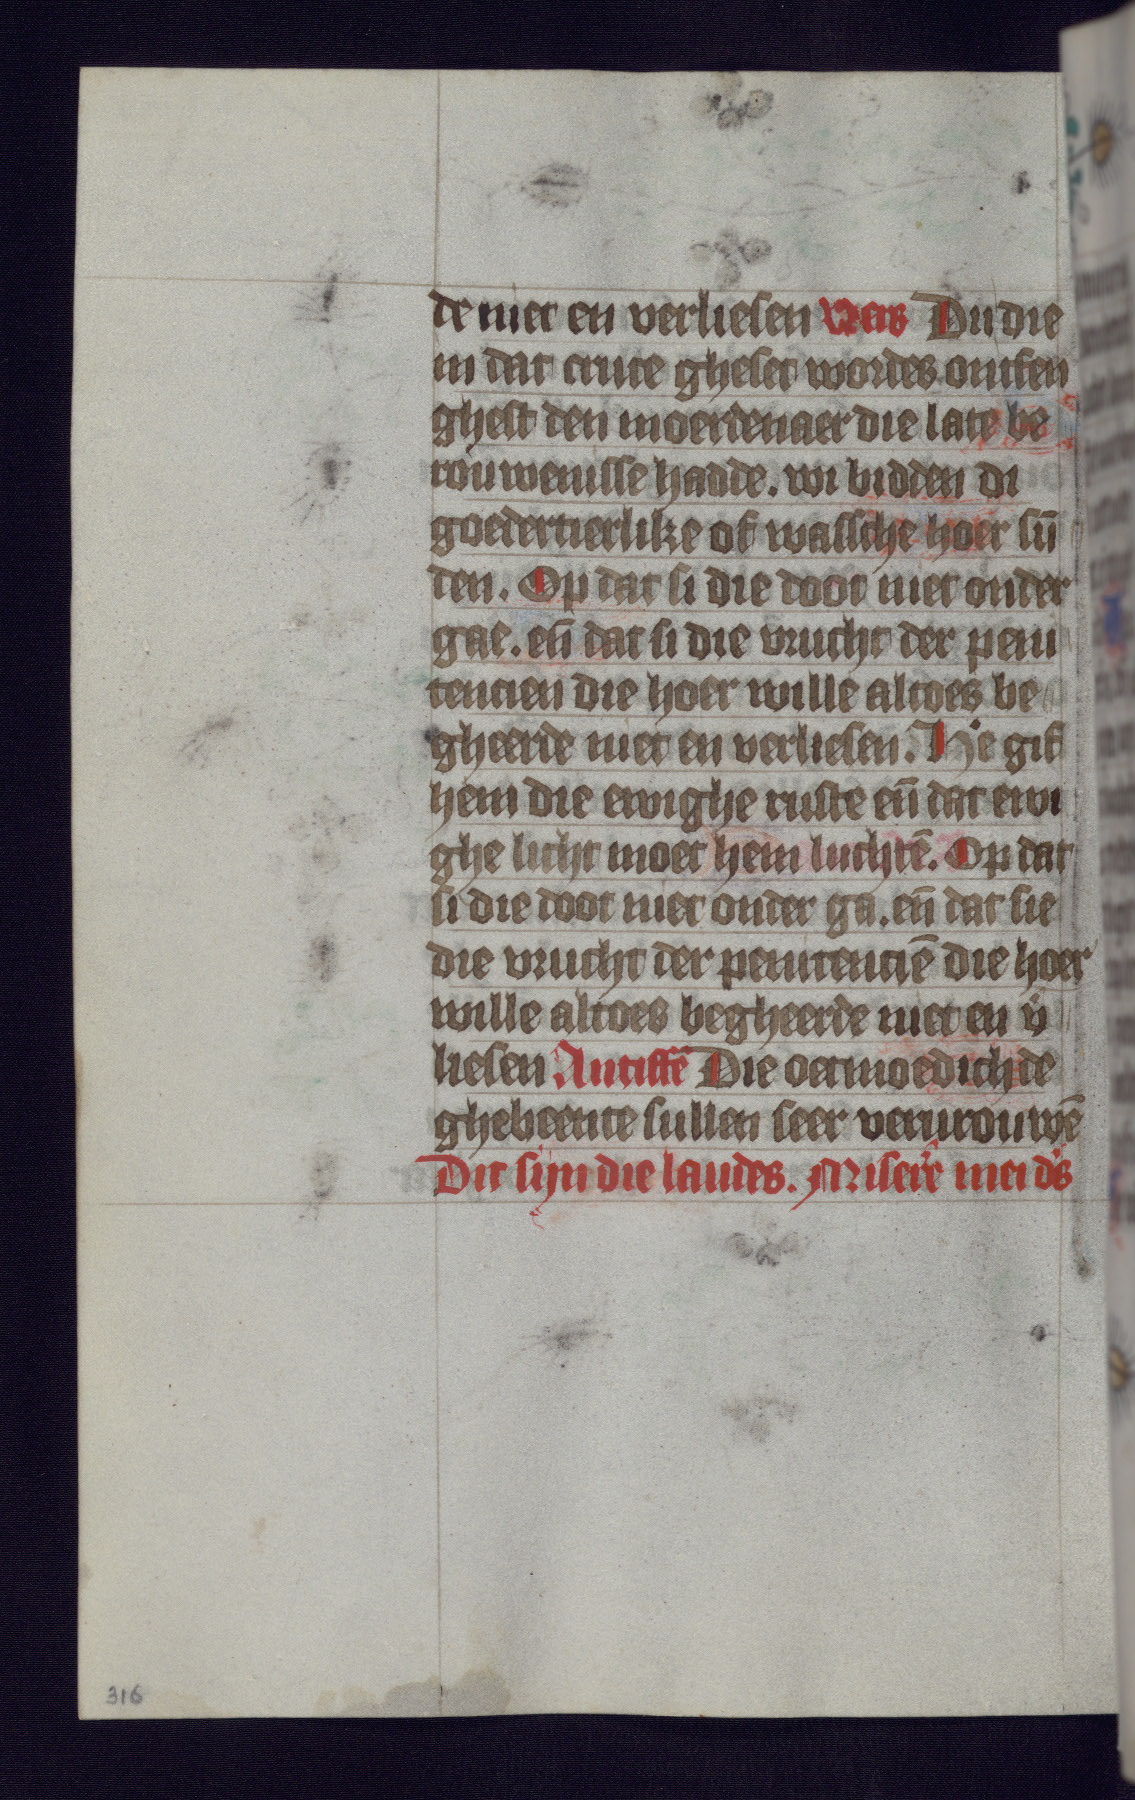 de niet en verliesen Vers Du die
in dat cruce gheset wordes ontfen
ghest den moerdenaer die late be
rouwenisse hadde. wi bidden di
goedertierlike of wassche hoer sū
den. Op dat si die doot niet onder
gae. eñ dat si die vrucht der peni
tencien die hoer wille altoes be
gheerde niet en verliesen. He gif
hem die ewighe ruste eñ dat ewi
ghe licht moet hem luchtē. Op dat
si die doot niet onder ga. eñ dat sie
die vrucht der penitenciē die hoer
wille altoes begheerde niet en v̉
liesen Antiffē Die oetmoedichde
ghebeente sullen seer vervrouwē
Dit sijn die laudes. Miserēre mei ds̄
316